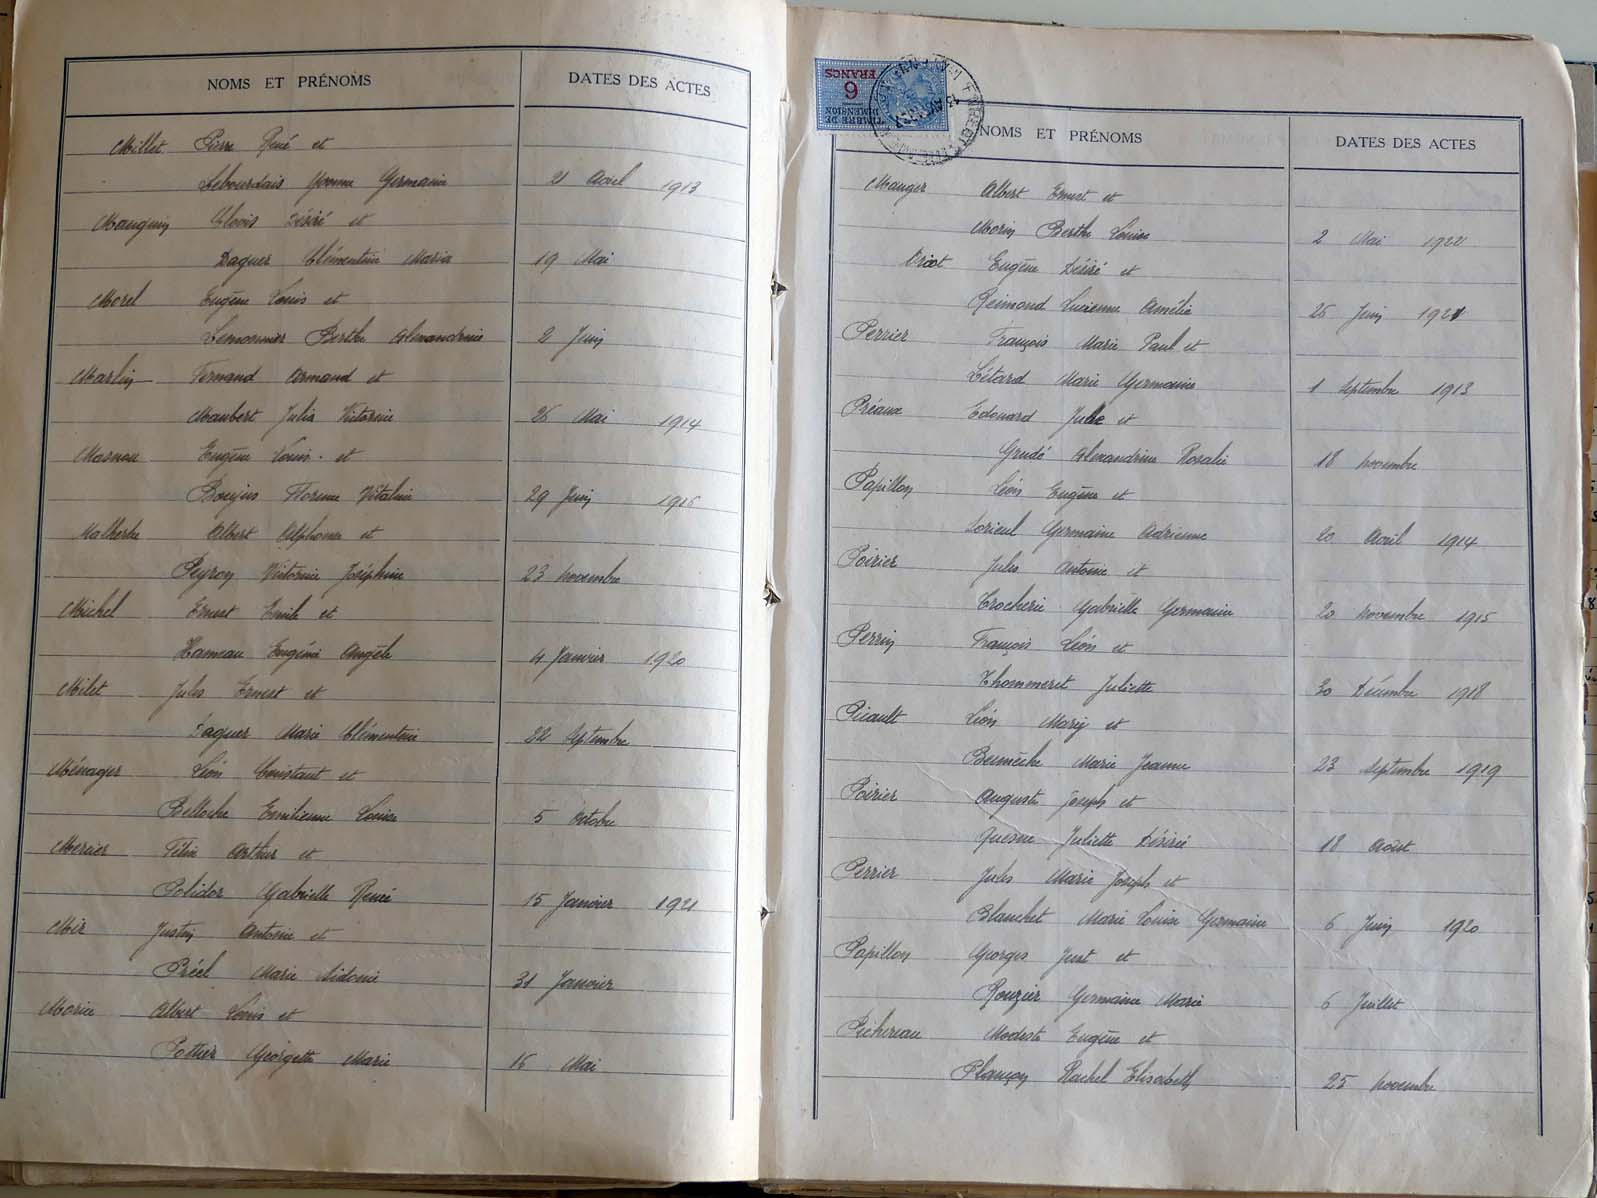 NOMS ET PRÉNOMS DATES DES ACTES
Millet Pierre René et
Lebourdais Yvonne Germaine 21 Avril 1913
Mauguin Clovis Désiré et
Daguer Clémentine Maria 19 Mai
Morel Eugène Louis et
Lemonnier Berthe Alexandrine 2 Juin
Martin Fernand Armand et
Maubert Julia Victorine 26 Mai 1914
Masnou Eugène Louis et
Florence Vitaline 29 Juin 1915
Malherbe Albert Alphonse et
Peyron Victorine Joséphine 23 novembre
Michel Ernest Emile et
Hameau Eugénie Angèle 4 Janvier 1920
Milet Jules Ernest et
Marie Clémentine 22 Septembre
Ménager Léon Constant et
Belloche Emilienne Louise 5 Octobre
Mercier Félix Arthur et
Polidor Gabrielle Renée 15 Janvier 1921
Mir Justin Antonin et
Préel Marie Sidonie 31 Janvier
Morin Albert Louis et
Pottier Georgette Marie 16 Mai
6 FRANCS
TIMBRE DE DIMENSION
NOMS ET PRÉNOMS DATES DES ACTES
Mauger Albert Ernest et
Morin Berthe Louise 2 Mai 1922
Eugène Désiré et
Reimond Lucienne Amélie 25 Juin 1921
Perrier François Marie Paul et
Létard Marie Germaine 1 Septembre 1913
Préaux Edouard Jules et
Grudé Alexandrine Rosalie 18 novembre
Papillon Léon Eugène et
Lorieul Germaine Adrienne 20 Avril 1914
Poirier Jules Antoine et
Crocherie Gabrielle Germaine 20 novembre 1915
Perrin François Léon et
Thommeret Juliette 30 Décembre 1918
Picault Léon Marin et
Marie Jeanne 23 Septembre 1919
Poirier Auguste Joseph et
Quesne Juliette Désirée 18 Août
Perrier Jules Marie Joseph et
Blanchet Marie Louise Germaine 6 Juin 1920
Papillon Georges Just et
Rouzier Germaine Marie 6 Juillet
Péchereau Modeste Eugène et
Plançon Rachel Elisabeth 25 novembre